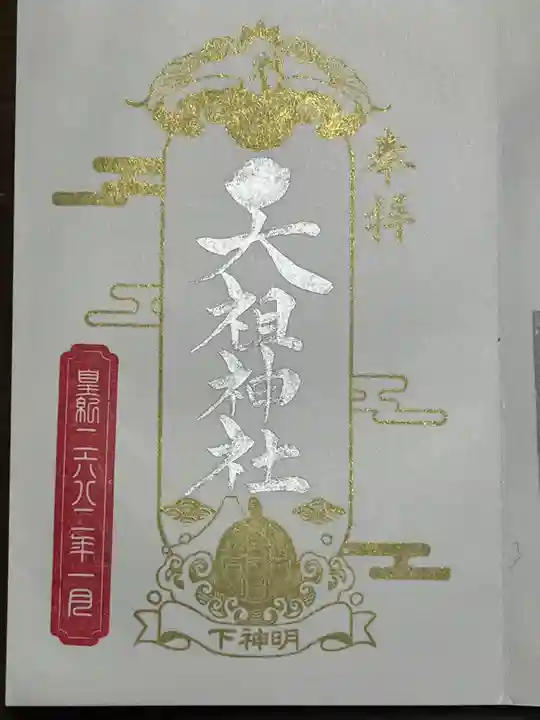 奉拝
天祖神社
皇紀二六八二年一月
下神明